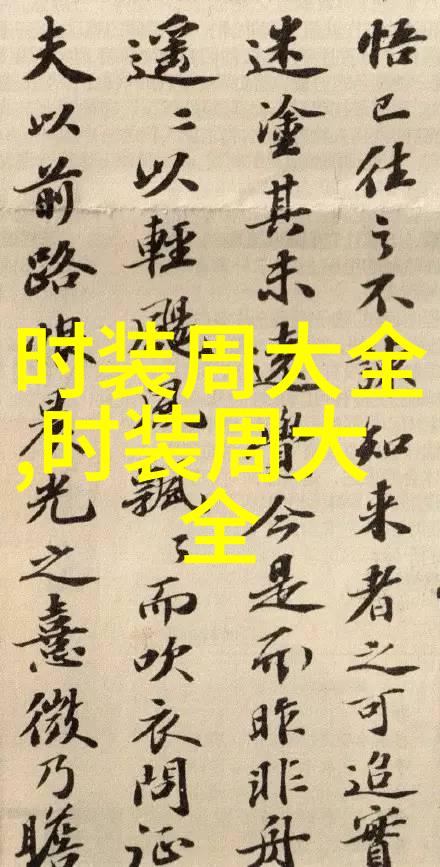 悟已往之不諫知来者之可追實
迷塗其未遠覺今是而昨非舟
遥〻以輕颺風飄〻而吹衣問征
夫以前路恨晨光之憙微乃瞻
时装周大全
,时装周大
全